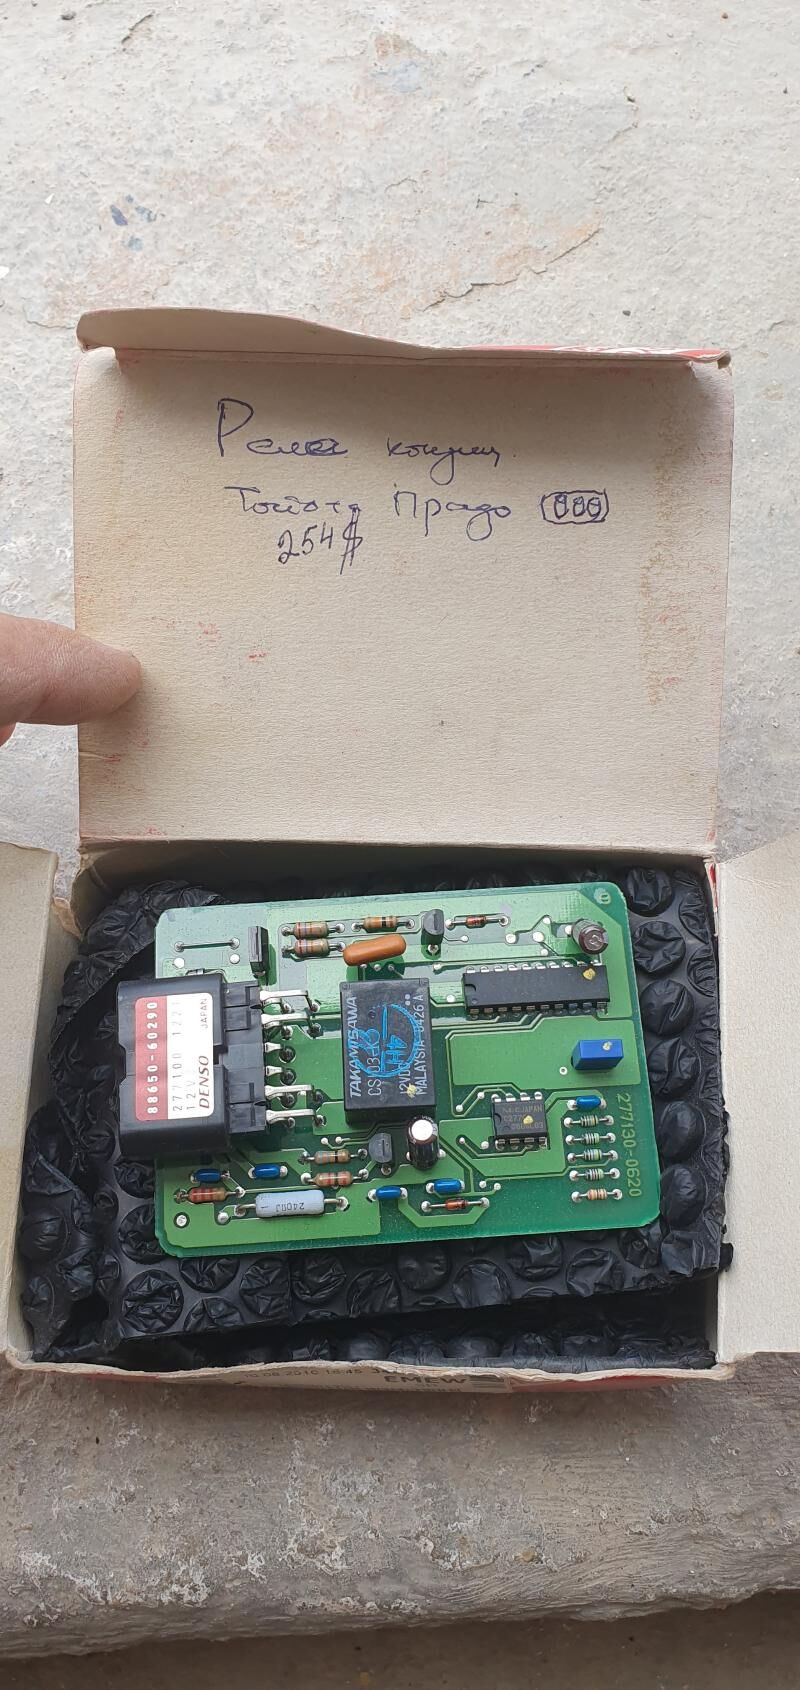 Реле кондиц.
Тойота Прадо
254$
88650-60290
277100 1221
12V JAPAN
DENSO
TAKAMISAWA
12VDC
MALAYSIA 0426 A
NEC JAPAN
277130-0620
240ΩJ
EMEW